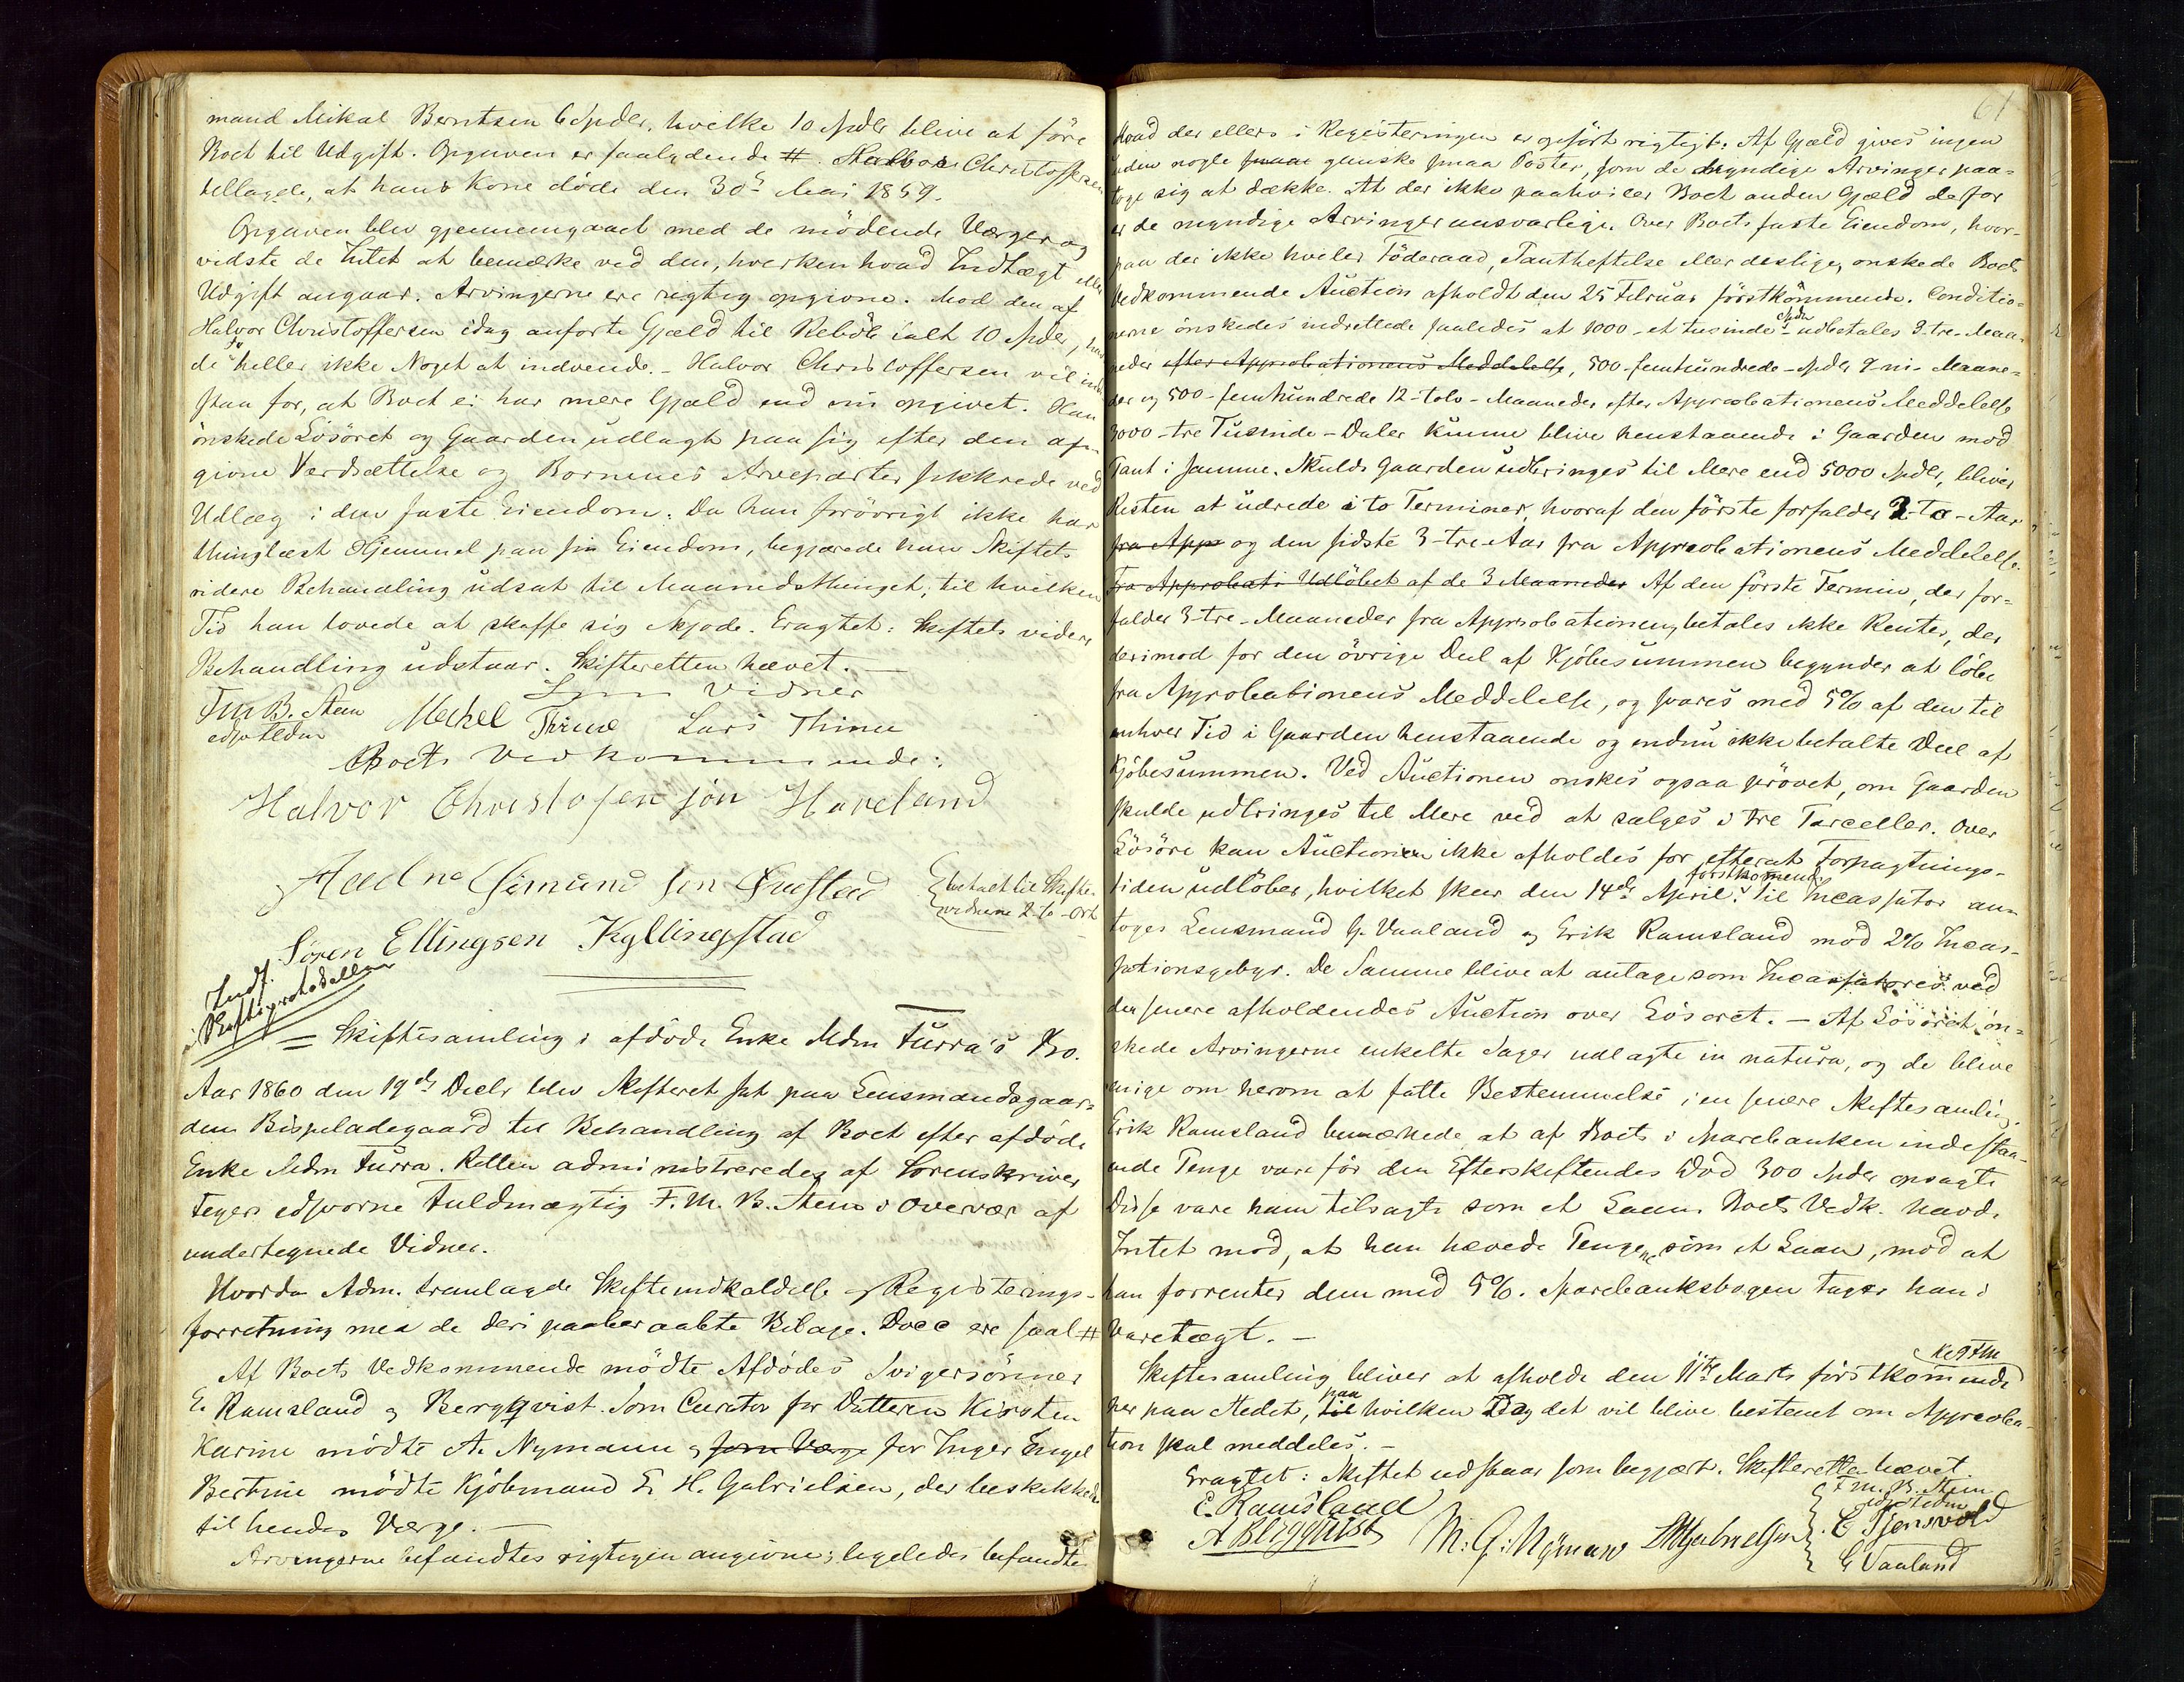 mand Mikal Berntsen 6 Spdlr. hvilke 10 Spdlr blive at före
Boet til Udgift. Opgaven er saalydende #. Halvor Christoffersen
tillagde, at hans Kone döde den 30te Mai 1859.
Opgaven blev gjennemgaaet med de mödende Værger og
vidste de Intet at bemærke ved den, hverken hvad Indtægt eller
Udgift angaar. Arvingerne ere rigtig opgivne. Mod den af
Halvor Christoffersen idag anförte Gjæld til Beløb ialt 10 Spdlr,
de heller ikke Noget at indvende. - Halvor Christoffersen vil inde
staa for, at Boet ei har mere Gjæld end nu opgivet. Han
önskede Lösöret og Gaarden udlagt paa sig efter den op-
givne Værdsættelse og Börnenes Arveparter sikkrede ved
Udlæg i den faste Eiendom. Da han forövrigt ikke har
thinglæst Hjemmel paa sin Eiendom, begjærede han Skiftets
videre Behandling udsat til Maanedsthinget, til hvilken
Tid han lovede at skaffe sig Skjøde. Eragtet: Skiftets videre
Behandling udstaar. Skifteretten hævet. -
Som Vidner
F M B. Stem Mechel Thime Lars Thime
edsv fldm
Boets Vedkommende:
Halvor Christofersen Haveland
Simund
betalt til Skifte-
vidnene 2-to-Ort
Søren Ellingsen Kyllingstad
Indf.
i Skifteprotocollen
= Skiftesamling i afdöde Enke Mdm Furra's Bo.
Aar 1860 den 19de Decbr blev Skifteret sat paa Lensmandsgaar-
den Bispeladegaard til Behandling af Boet efter afdöde
Enke Mdm Furra. Retten administreredes af Sorenskriver
Feyers edsvorne Fuldmægtig F. M. B. Stem i Overvær af
undertegnede Vidner.
Hvorda Adm. fremlagde Skifteindkaldelse og Registerings-
forretning med de deri paaberaabte Bilage. Docc ere saal #
Af Boets Vedkommende mödte Afdödes Svigersönner
E. Ramsland og Bergqvist. Som Curator for Datteren Kirsten
Karine mödte A. Nymann og som Værge for Inger Engel
Bertine mödte Kjöbmand E H. Gabrielsen, der beskikkedes
til hendes Værge. -
Arvingerne befandtes rigtigen angivne; ligeledes befandtes
61
Hvad der ellers i Registeringen er opfört rigtigt. Af Gjæld gives ingen
uden nogle smaae ganske smaa Poster, som de myndige Arvinger paa-
toge sig at dække. At der ikke paahviler Boet anden Gjæld derfor
er de myndige Arvinger ansvarlige. Over Boets faste Eiendom, hvor-
paa der ikke hviler Föderaad, Pantheftelse eller deslige, önskede Boets
Vedkommende Auction afholdt den 25 Februar förstkommende. Conditio-
nerne önskedes indrettede saaledes at 1000-et tusinde Spdlr- udbetales 3-tre-Maa-
neder efter Approbationens Meddelelse, 500-femhundrede-Spdlr 9-ni-Maane-
der og 500-femhundrede 12-tolv-Maaneder efter Approbationens Meddelelse
3000-tre Tusinde-Daler kunne blive henstaaende i Gaarden mod
Pant i samme. Skulde Gaarden udbringes til Mere end 5000 Spdlr, bliver
Resten at udrede i to Terminer, hvoraf den förste forfalder 2-to-Aar
fra App og den sidste 3-tre-Aar fra Approbationens Meddelelse.
Fra Approbati Udlöbet af de 3 Maaneder Af den förste Termin, der for-
falder 3-tre-Maaneder fra Approbationen, betales ikke Renter, der
derimod for den övrige Deel af Kjöbesummen begynder at löbe
fra Approbationens Meddelelse, og svares med 5% af den til
enhver Tid i Gaarden henstaaende og endnu ikke betalte Deel af
Kjöbesummen. Ved Auctionen önskes ogsaa prövet, om Gaarden
skulde udbringes til Mere ved at sælges i tre Parceller. Over
Lösöre kan Auctionen ikke afholdes for efterat Forpagtnings-
tiden udlöber, hvilket skeer den 14de April förstkommende. Til Incassator an-
toges Lensmand G. Vaaland og Erik Ramsland mod 2% Incas-
sationsgebyr. De Samme blive at antage som Incassatores ved
den senere afholdendes Auction over Lösöret. - Af Lösöret ön-
skede Arvingerne enkelte Sager udlagte in natura, og de bleve
enige om herom at fatte Bestemmelse i en senere Skiftesamling.
Erik Ramsland bemærkede at af Boets i Sparebanken indestaa-
ende Penge vare för den Efterskiftendes Död 300 Spdlr opsagte
Disse vare ham tilsagte som et Laan. Boets Vedk. havde
Intet mod, at han hævede Pengene som et Laan, mod at
han forrenter dem med 5%. Sparebanksbogen tager han i
Varetægt. -
Skiftesamling bliver at afholde den 11te Marts förstkommende
her paa Stedet, til paa hvilken Dag det vil blive bestemt om Approba-
tion skal meddeles. -
Eragtet: Skiftet udstaar som begjært. Skifteretten hævet
E. Ramsland
A Bergquist M. G. Nyman EHGabrielsen
F M. B. Stem
edsv fldm
E Tjensvold
G Vaaland